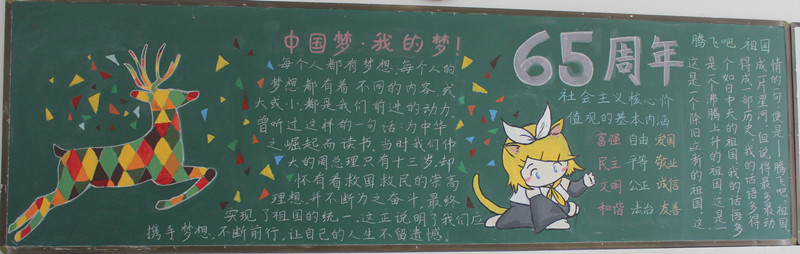 中国梦·我的梦!
每个人都有梦想,每个人的
梦想都有着不同的内容,或
大或小,都是我们前进的动力,
曾听过这样的一句话:为中华
之崛起而读书,当时我们伟
大的周总理只有十三岁,却
怀有着救国救民的崇高
理想,并不断为之奋斗,最终
实现了祖国的统一,这正说明了我们应
携手梦想,不断前行,让自己的人生不留遗憾。
65周年
社会主义核心价
值观的基本内涵
富强 自由 爱国
民主 平等 敬业
文明 公正 诚信
和谐 法治 友善
情的一句便是——腾飞吧,祖国
成一片星河,但说得最多最动
得成一部历史,我的话语多得
腾飞吧 祖国
是一个沸腾上升的祖国,这是一
个如日中天的祖国,我的话语多
这是一个除旧立新的祖国,这